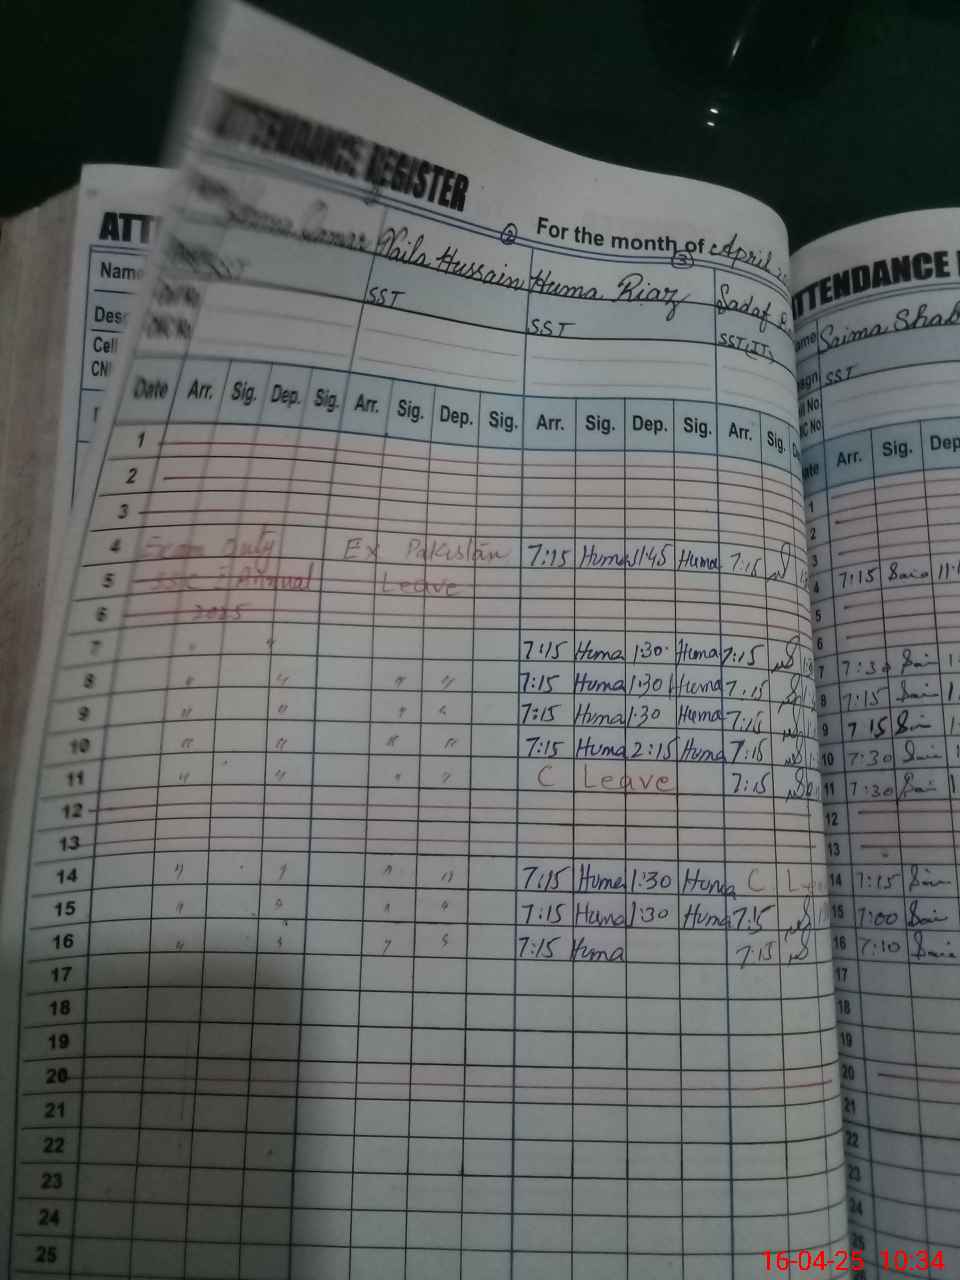 ATTENDANCE REGISTER
For the month of April
Naila Hussain
Huma Riaz
Sadaf
SST
SST
SST(IT)
Date Arr. Sig. Dep. Sig. Arr. Sig. Dep. Sig. Arr. Sig. Dep. Sig. Arr. Sig.
1
2
3
4 Exam Duty Ex Pakistan 7:15 Huma 11:45 Huma 7:15
5 SSC I Annual Leave
6 2025
7 " 7:15 Huma 1:30 Huma 7:15
8 " " " " 7:15 Huma 1:30 Huma 7:15
9 " " " " 7:15 Huma 1:30 Huma 7:15
10 " " " " 7:15 Huma 2:15 Huma 7:15
11 " " " " C Leave 7:15
12
13
14 " " " " 7:15 Huma 1:30 Huma C
15 " " " " 7:15 Huma 1:30 Huma 7:15
16 " " " " 7:15 Huma 7:15
17
18
19
20
21
22
23
24
25
ATT
Name
Cell
ATTENDANCE
Saima
SST
Arr. Sig. Dep
1
2
3
4 7:15
5
6
7 7:30
8 7:15
9 7 15
10 7:30
11 7:30
12
13
14 7:15
15 7:00
16 7:10
17
18
19
20
21
22
23
24
25
16-04-25 10:34